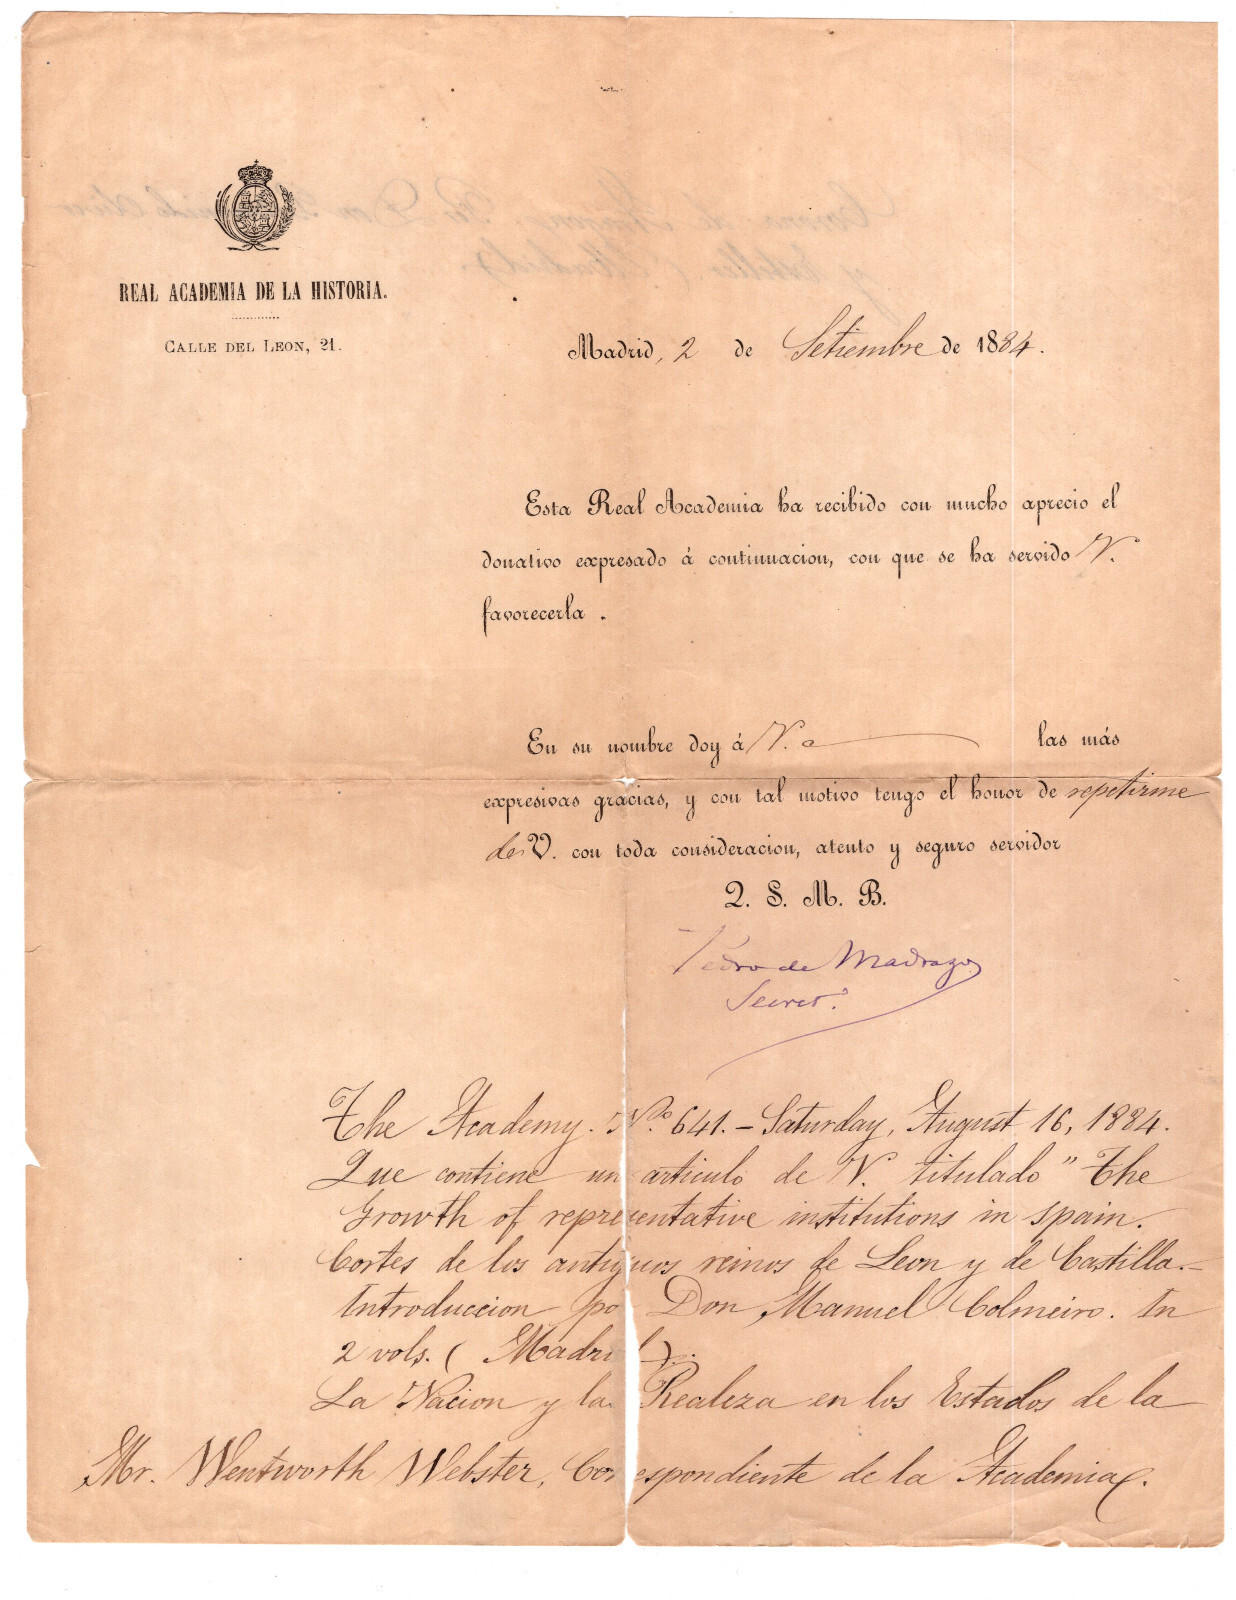 REAL ACADEMIA DE LA HISTORIA.
CALLE DEL LEON, 21.
Madrid, 2 de Setiembre de 1884.
Esta Real Academia ha recibido con mucho aprecio el
donativo expresado á continuacion, con que se ha servido V.
favorecerla .
En su nombre doy á V. las más
expresivas gracias, y con tal motivo tengo el honor de repetirme
de V. con toda consideracion, atento y seguro servidor
Q. S. M. B.
Pedro de Madrazo
Secret.º
The Academy. Nº. 641. - Saturday, August 16, 1884.
Que contiene un articulo de V. titulado "The
Growth of representative institutions in Spain.
Cortes de los antiguos reinos de Leon y de Castilla.-
Introduccion por Don Manuel Colmeiro. In
2 vols. ( Madrid ).
La Nacion y la Realeza en los Estados de la
Mr. Wentworth Webster, Correspondiente de la Academia.